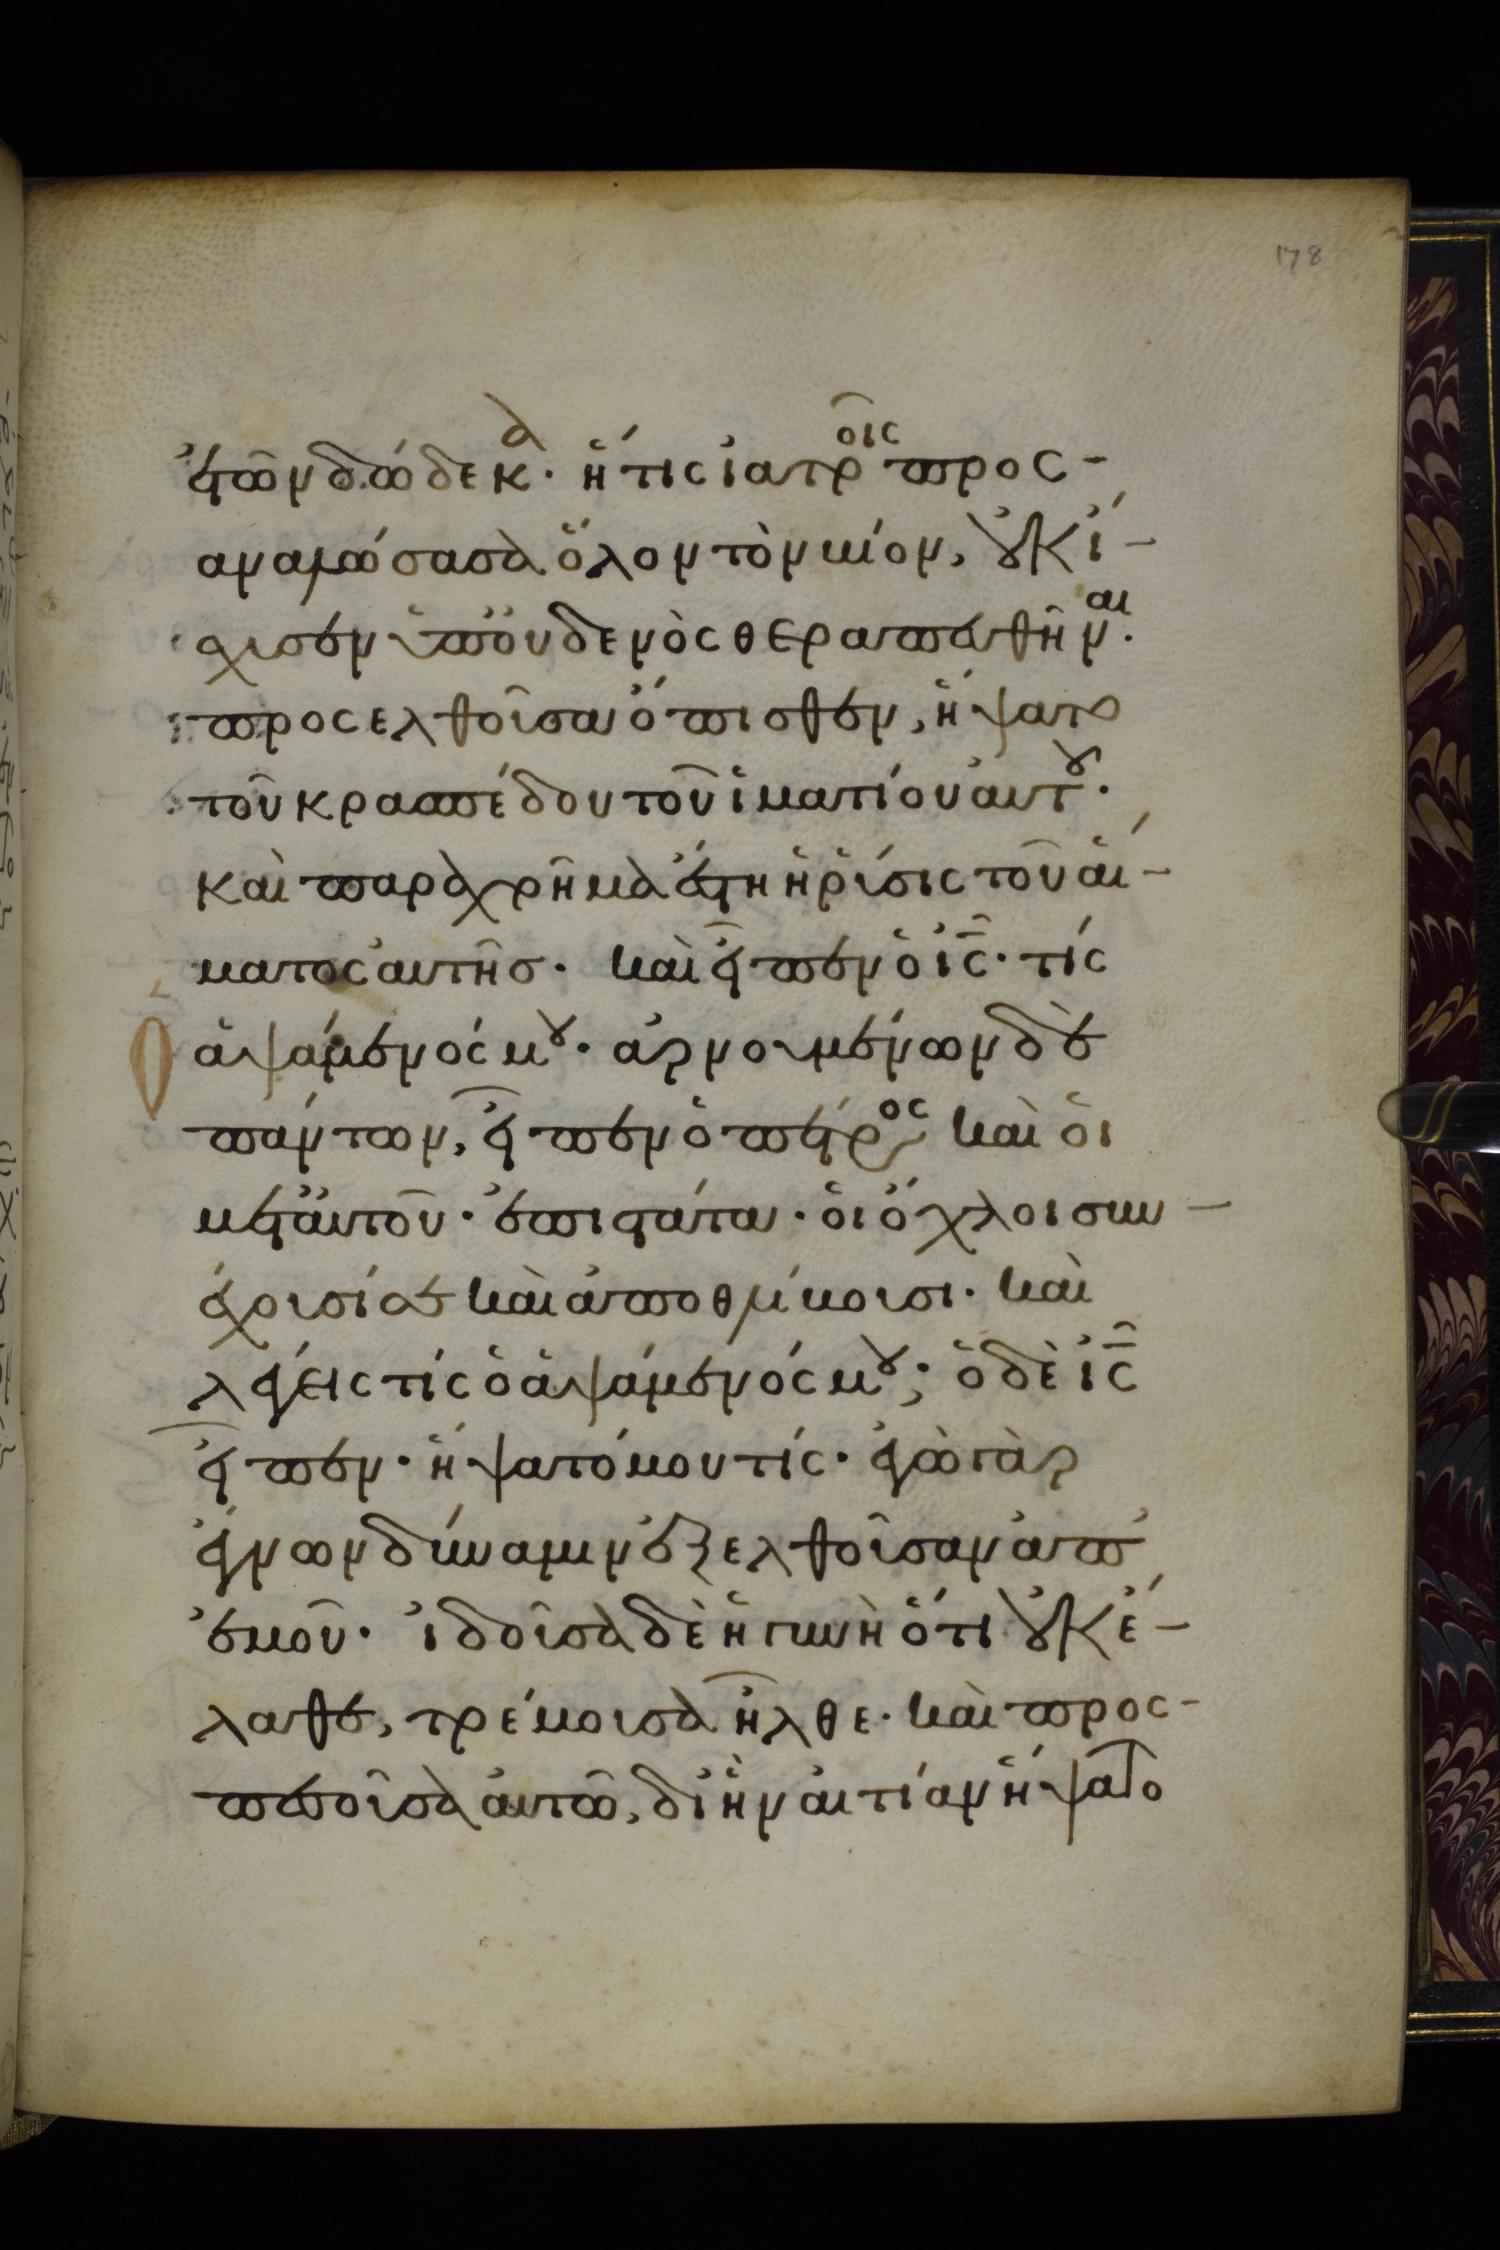 178
ἐτῶν δώδεκα· ἥτις ἰατροῖς προσ-
αναλώσασα ὅλον τὸν βίον, οὐκ ἴ-
χυσεν ὑπ' οὐδενὸς θεραπευθῆναι·
προσελθοῦσα ὄπισθεν, ἥψατο
τοῦ κρασπέδου τοῦ ἱματίου αὐτοῦ·
καὶ παραχρῆμα ἔστη ἡ ῥύσις τοῦ αἵ-
ματος αὐτῆς· καὶ εἶπεν ὁ ις· τίς
ὁ ἁψάμενός μου· ἀρνουμένων δὲ
πάντων, εἶπεν ὁ πέτρος καὶ οἱ
μετ' αὐτοῦ· ἐπιστάτα· οἱ ὄχλοι συν-
έχουσί σε καὶ ἀποθλίβουσι· καὶ
λέγεις τίς ὁ ἁψάμενός μου; ὁ δὲ ις
εἶπεν· ἥψατό μου τίς· ἐγὼ γὰρ
ἔγνων δύναμιν ἐξελθοῦσαν ἀπ'
ἐμοῦ· ἰδοῦσα δὲ ἡ γυνὴ ὅτι οὐκ ἔ-
λαθε, τρέμουσα ἦλθε· καὶ προσ-
πεσοῦσα αὐτῶ, δι' ἣν αἰτίαν ἥψατο